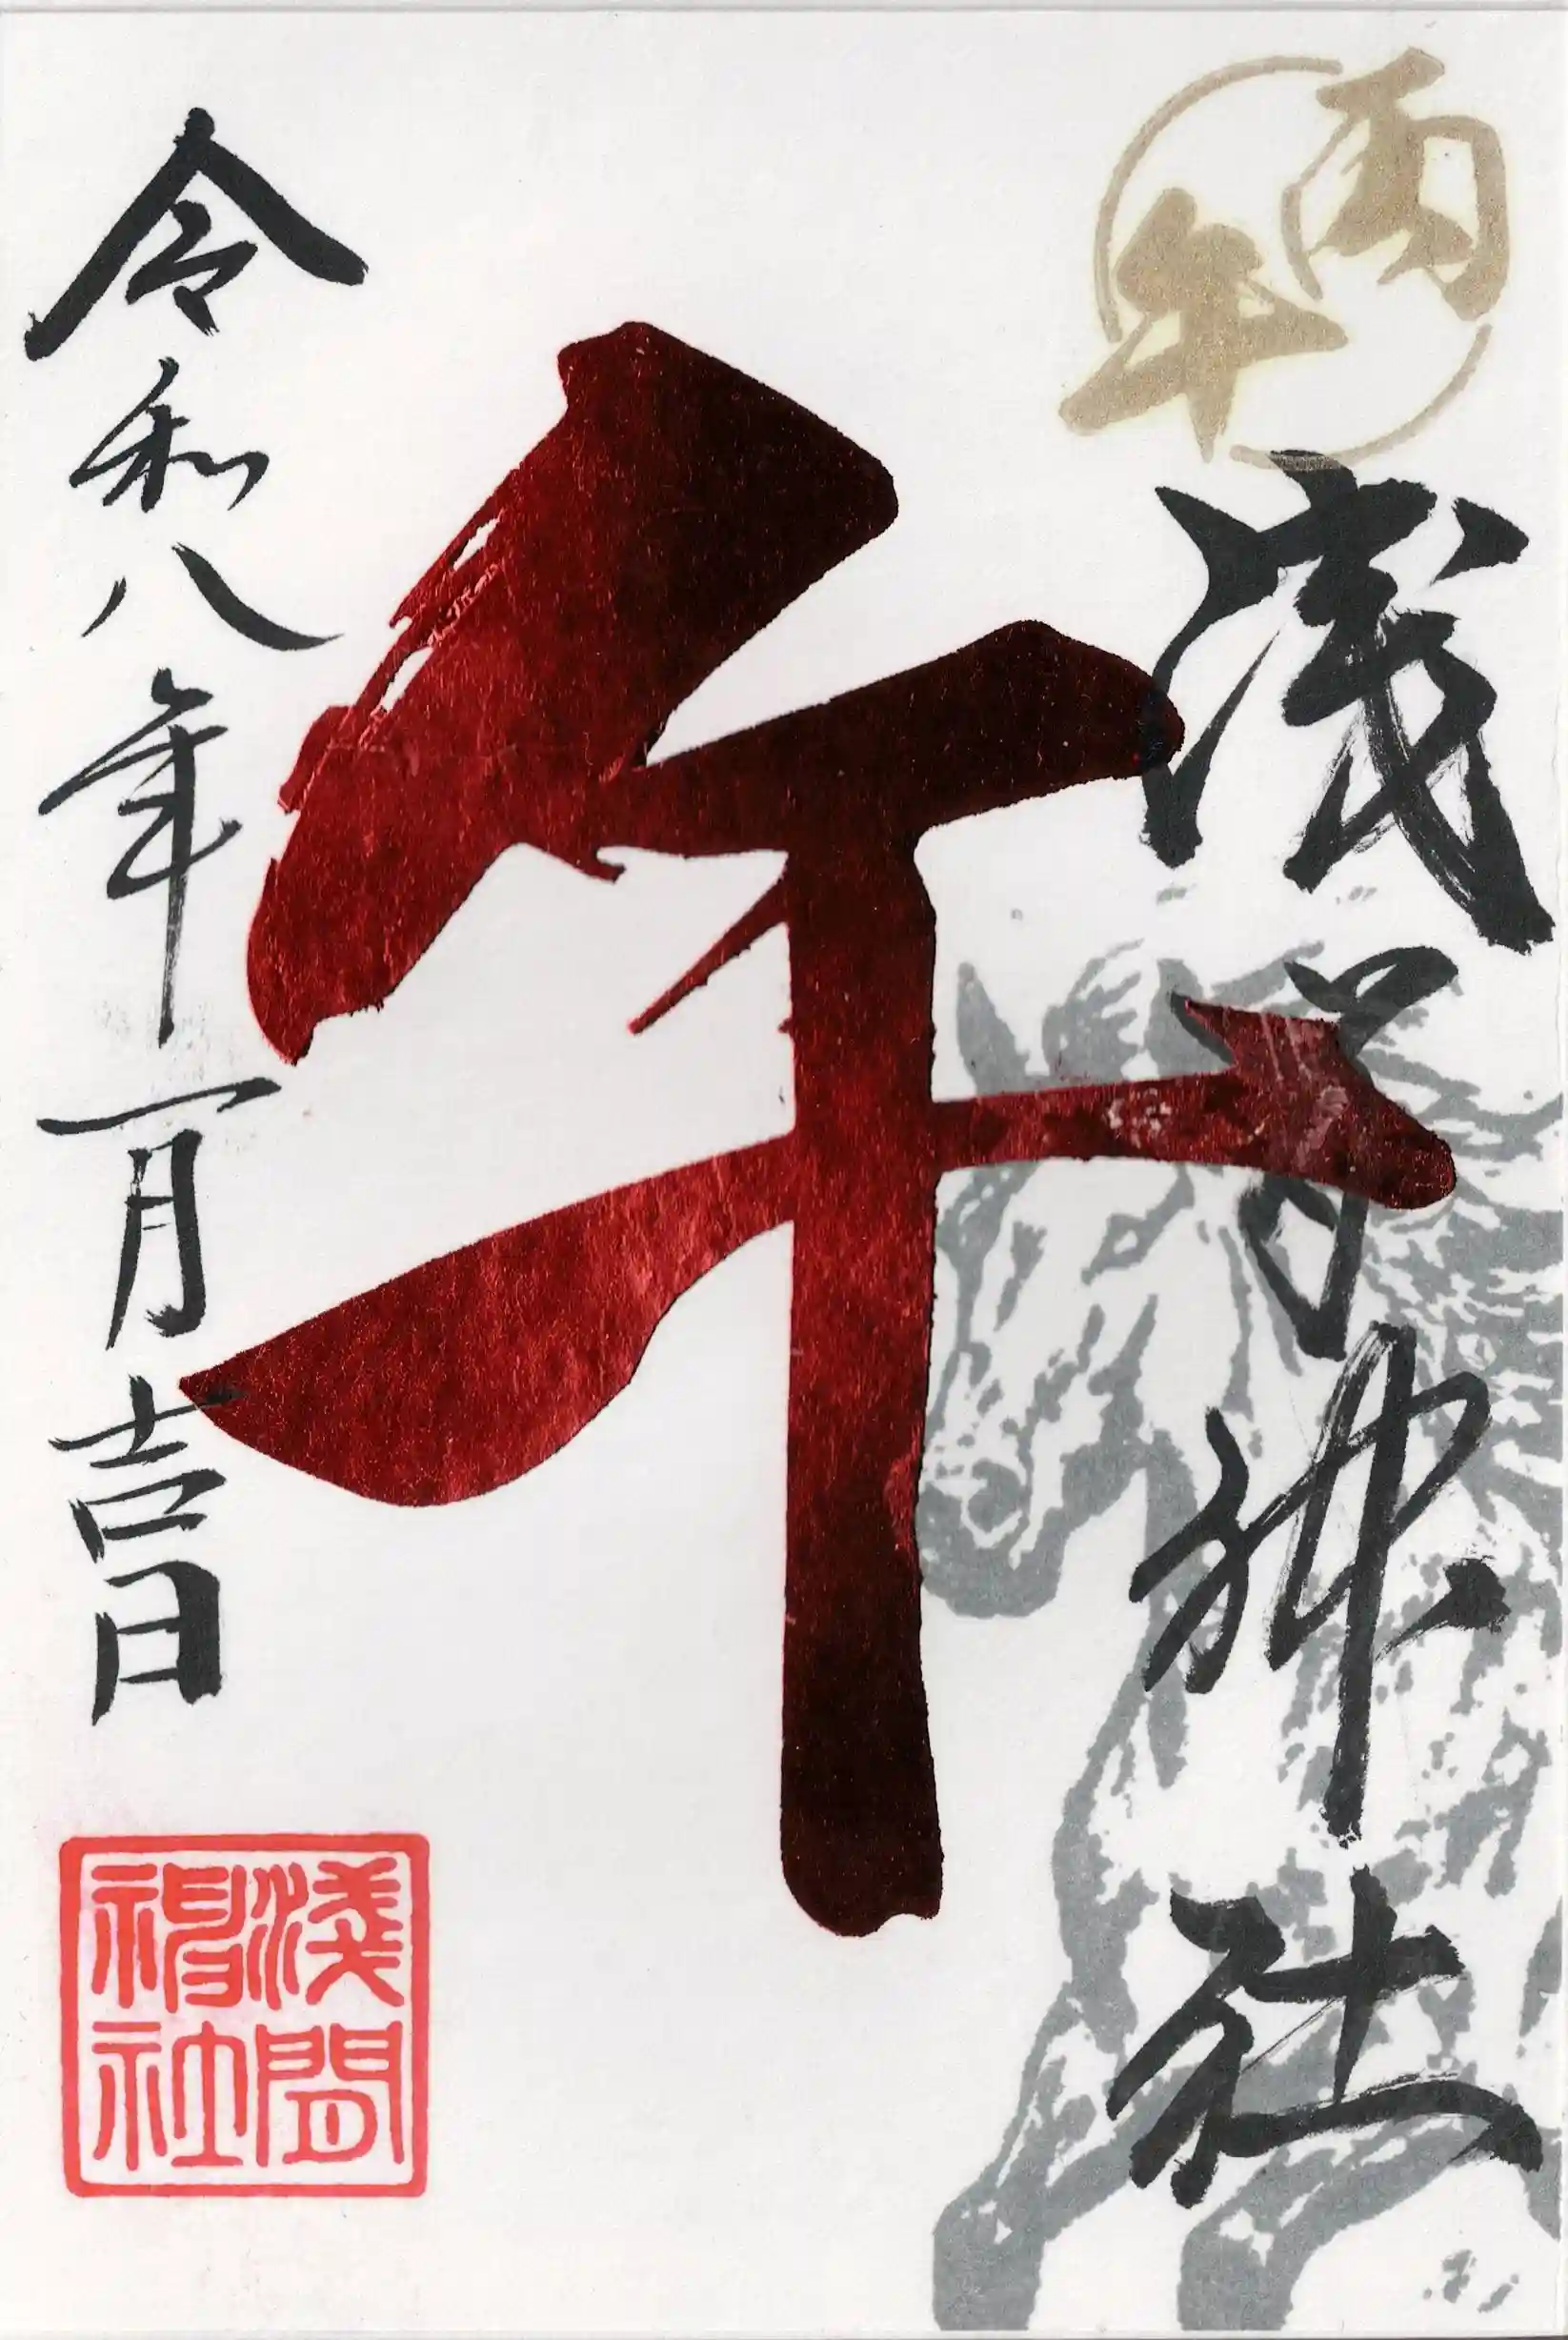 丙午
浅間神社
午
令和八年一月吉日
淺間
神社